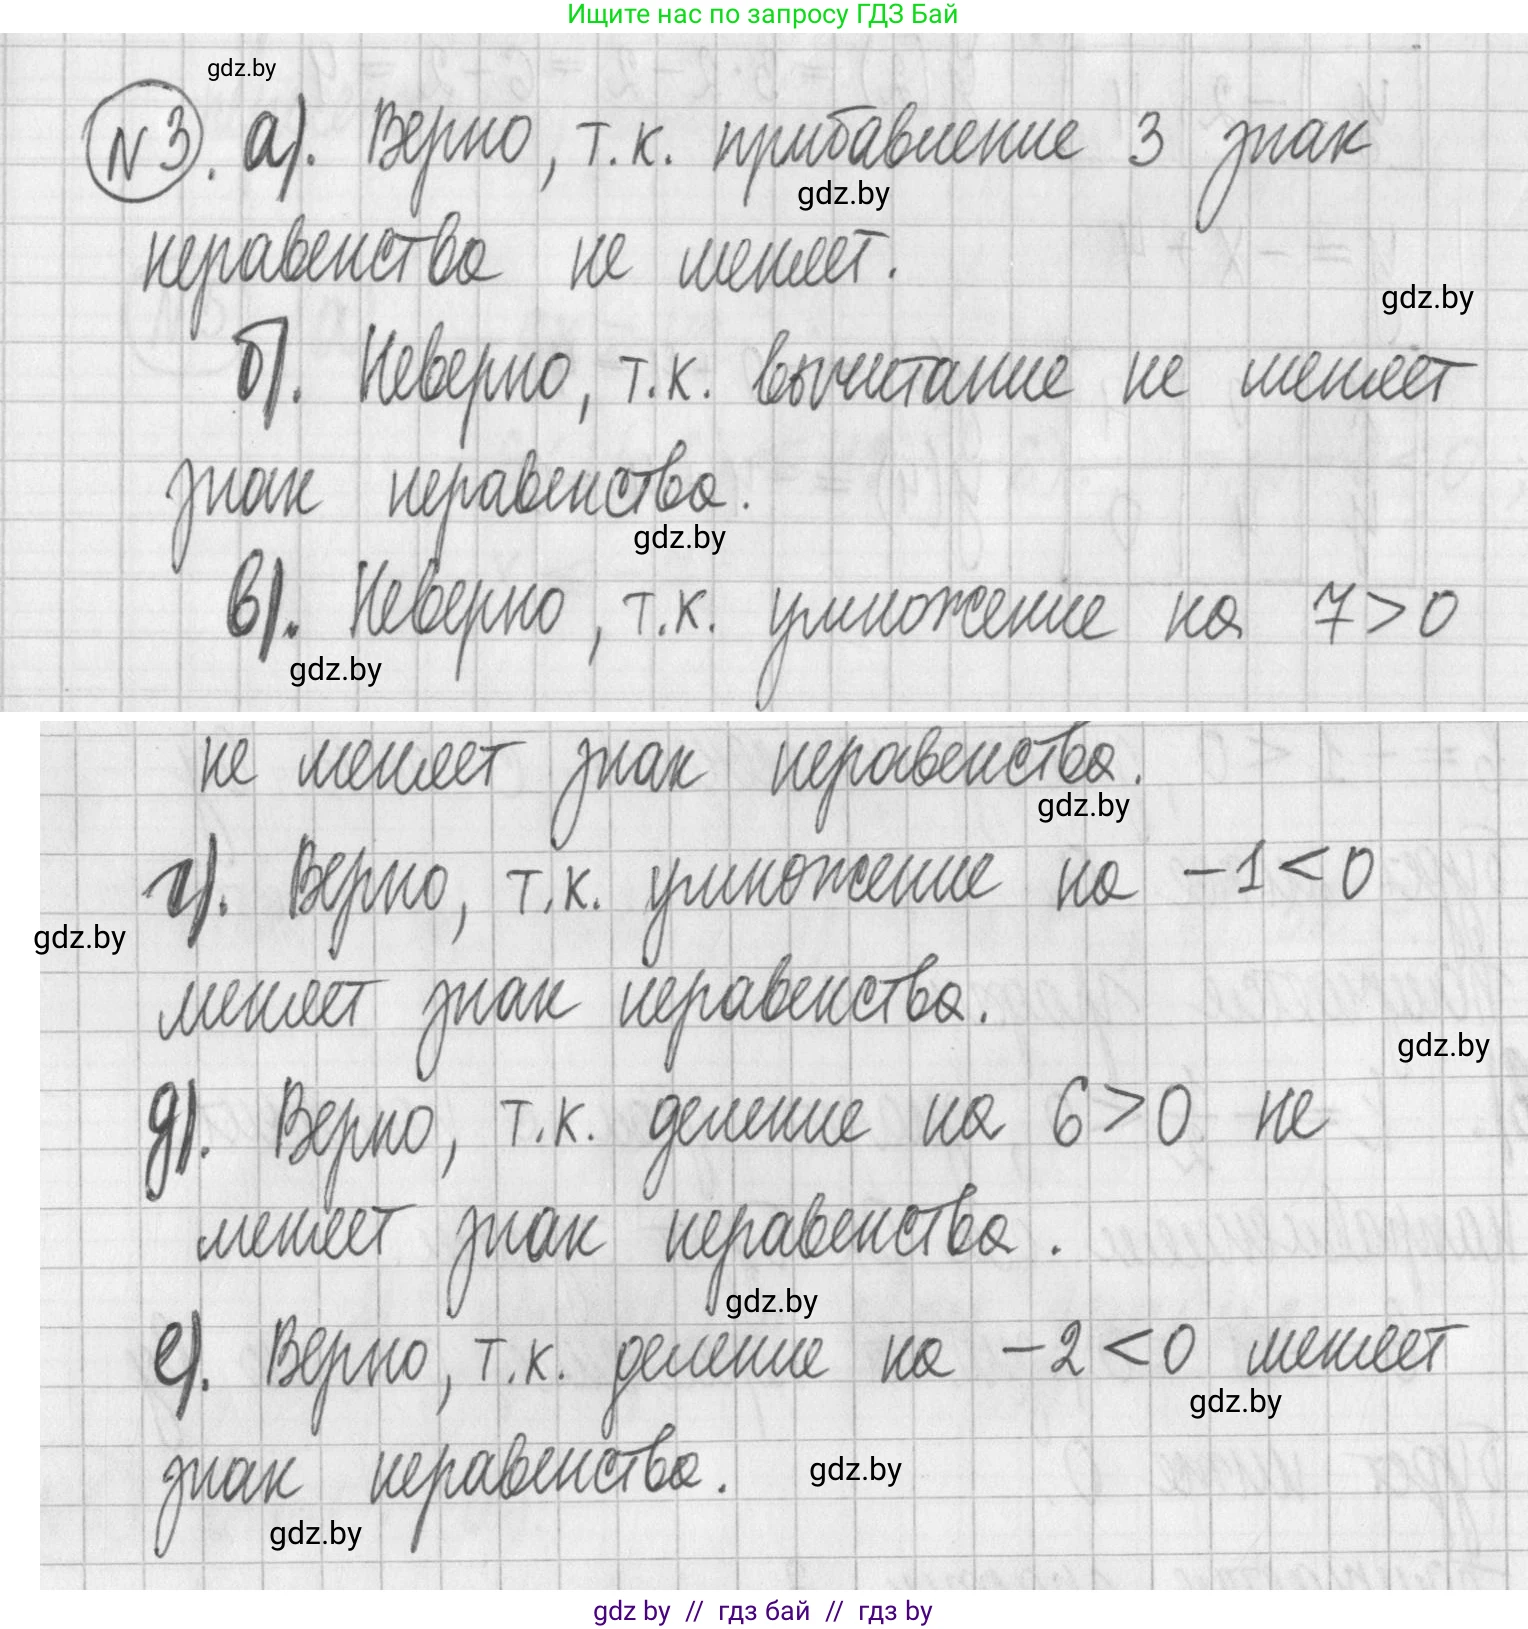 Ищите нас по запросу ГДЗ Бай
gdz.by
№3. а). Верно, т.к. прибавление 3 знак
gdz.by
неравенства не меняет.
gdz.by
б). Неверно, т.к. вычитание не меняет
знак неравенства.
gdz.by
в). Неверно, т.к. умножение на 7>0
gdz.by
не меняет знак неравенства.
gdz.by
г). Верно, т.к. умножение на -1<0
gdz.by
меняет знак неравенства.
gdz.by
д). Верно, т.к. деление на 6>0 не
меняет знак неравенства.
gdz.by
е). Верно, т.к. деление на -2<0 меняет
gdz.by
знак неравенства.
gdz.by
gdz.by
gdz by // гдз бай // гдз by